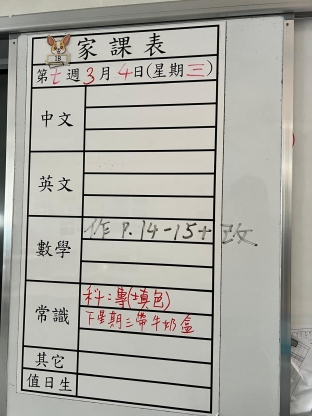 家課表
1B
第七週3月4日(星期三)
中文
英文
數學 作 P.14-15+改
常識 科:專(填色)
下星期三帶牛奶盒
其它
值日生